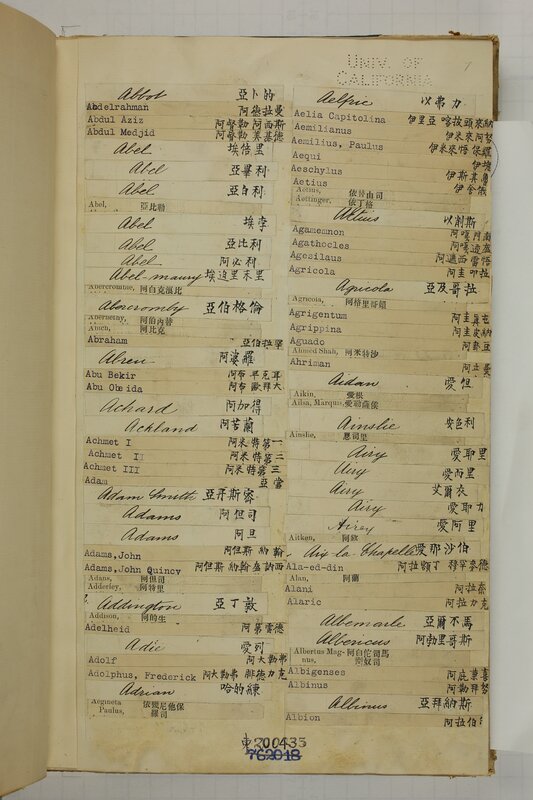 UNIV. OF
CALIFORNIA
Abbot 亞卜的
Abdelrahman 阿德拉曼
Abdul Aziz 阿督勒阿西斯
Abdul Medjid 阿督勒美基德
Abel 埃倍里
Abel 亞畢利
Abel 亞白利
Abel, 亞比勒
Abel 埃孛
Abel 亞比利
Abel 阿必利
Abel-maury 埃边里禾里
Abercrombie, 阿白克浪比
Abercromby 亞伯格倫
Abernethy, 阿伯內替
Abich, 阿比克
Abraham 亞伯拉罕
Abren 阿婆羅
Abu Bekir 阿布平克耳
Abu Obeida 阿布歐拜大
Achard 阿加得
Ackland 阿苦蘭
Achmet I 阿米特第一
Achmet II 阿米特第二
Achmet III 阿米特第三
Adam 亞當
Adam Smith 亞丹斯密
Adams 阿但司
Adams 阿旦
Adams, John 阿但斯約翰
Adams, John Quincy 阿但斯約翰盎訥西
Adans, 阿但司
Adderley, 阿特里
Addington 亞丁敦
Addison, 阿的生
Adelheid 阿第雷德
Adie 愛列
Adolf 阿大勒弗
Adolphus, Frederick 阿大勒弗 腓德力克
Adrian 哈的練
Aegineta Paulus, 依幾尼他保羅司
Aelfric 以弗力
Aelia Capitolina 伊里亞
Aemilianus 伊米來阿努
Aemilius, Paulus 伊米來悟保羅
Aequi 伊
Aeschylus 伊斯其
Aetius 伊舍俄
Aetius, 依替由司
Aettinger, 依丁格
Altius 以削斯
Agamemnon 阿嘎
Agathocles 阿嘎
Agesilaus 阿遮西雷悟
Agricola 阿圭叩拉
Agricola 亞及哥拉
Agricola, 阿格里哥頼
Agrigentum 阿圭
Agrippina 阿圭皮納
Aguado
Ahmed Shah, 阿米特沙
Ahriman 阿立曼
Aidan 愛但
Aikin, 愛根
Ailsa, Marquis, 愛勒薩侯
Ainslie 安色利
Ainslie, 恩司里
Airy 愛耶里
Airy 愛而里
Airy 艾爾衣
Airy 愛耶力
Airey 愛阿里
Aitken,
Aix-la-Chapelle 愛那沙伯
Ala-ed-din 阿拉額丁
Alan, 阿蘭
Alani 阿拉奈
Alaric 阿拉力克
Albemarle 亞爾不馬
Albericus 阿勃里哥斯
Albertus Magnus, 阿白佗司馬
Albigenses
Albinus 阿勒拜努
Albinus 亞拜納斯
Albion 阿拉伯
東200435
762018